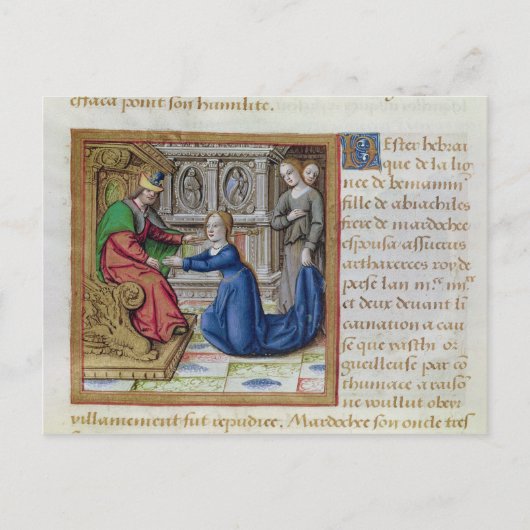 effaca point son humilite.
Ester hebrai
que de la lig
nee de beniamin
fille de abiachiles
frere de mardochee
espousa assuerus
arthaxerces roy de
perse lan m. iiij
et deux devant lı
carnation a cau
se que vasthi or
gueilleuse par co
thumace a raisō
ne voullut obeyr
villainement fut repudiee. Mardochee son oncle tres